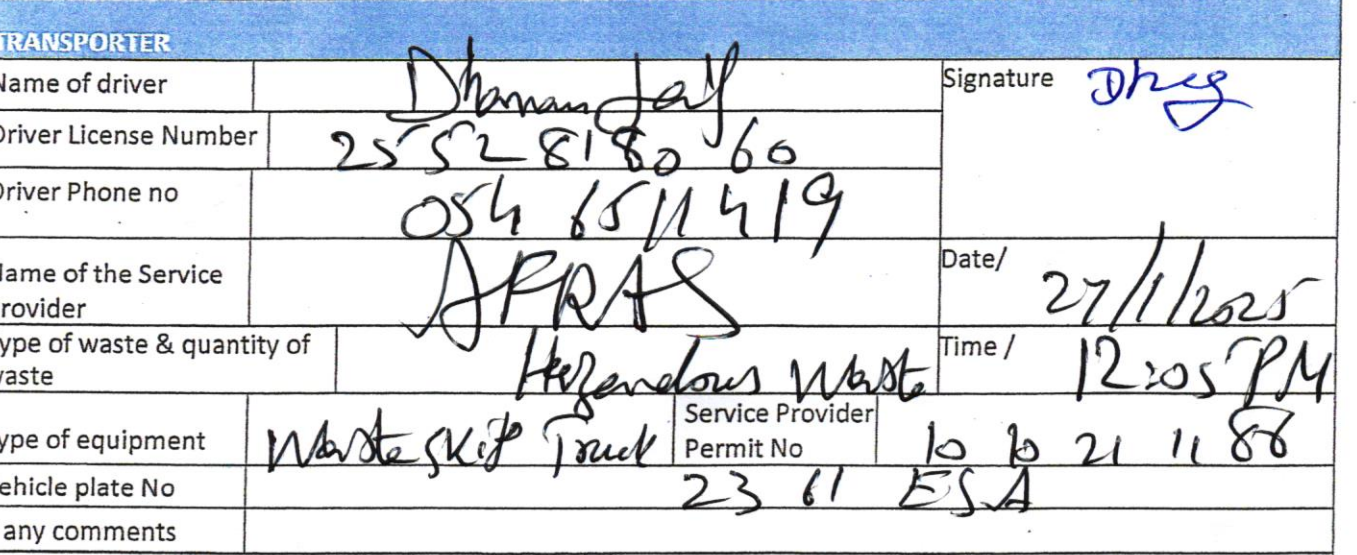 TRANSPORTER
Name of driver Dhananjay Signature Dheg
Driver License Number 2552818060
Driver Phone no 054 6511419
Name of the Service Provider APRAS Date/ 27/1/2025
Type of waste & quantity of waste Hazandous Waste Time / 12:05 PM
Type of equipment Waste skip Truck Service Provider Permit No 10 10 21 11 88
Vehicle plate No 23 61 ESA
any comments